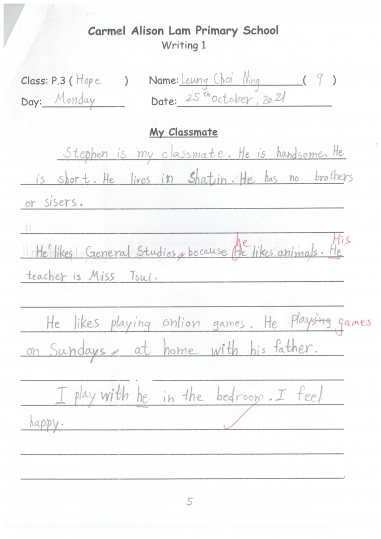 Carmel Alison Lam Primary School
Writing 1
Class: P.3 ( Hope ) Name: Leung Choi Ning ( 9 )
Day: Monday Date: 25th October, 2021
My Classmate
Stephen is my classmate. He is handsome. He
is short. He lives in Shatin. He has no brothers
or sisers.
he His
He likes General Studios, because He likes animals. He
teacher is Miss Tsui.
He likes playing onlion games. He playsing games
on Sundays, at home with his father.
I play with he in the bedroom. I feel
happy.
5